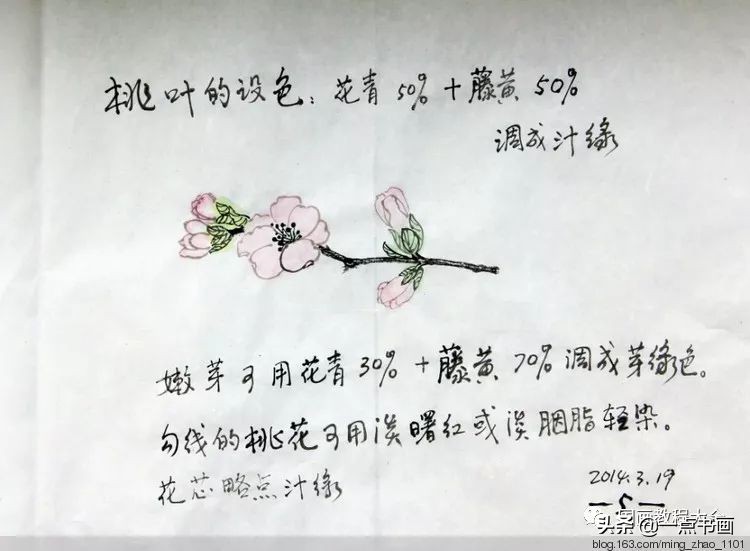 桃叶的设色：花青50%＋藤黄50%
调成汁绿
嫩芽可用花青30%＋藤黄70%调成芽绿色。
勾线的桃花可用淡曙红或淡胭脂轻染。
花芯略点汁绿
2014.3.19
头条@一点书画
blog.163.com/ming_zhao_1101